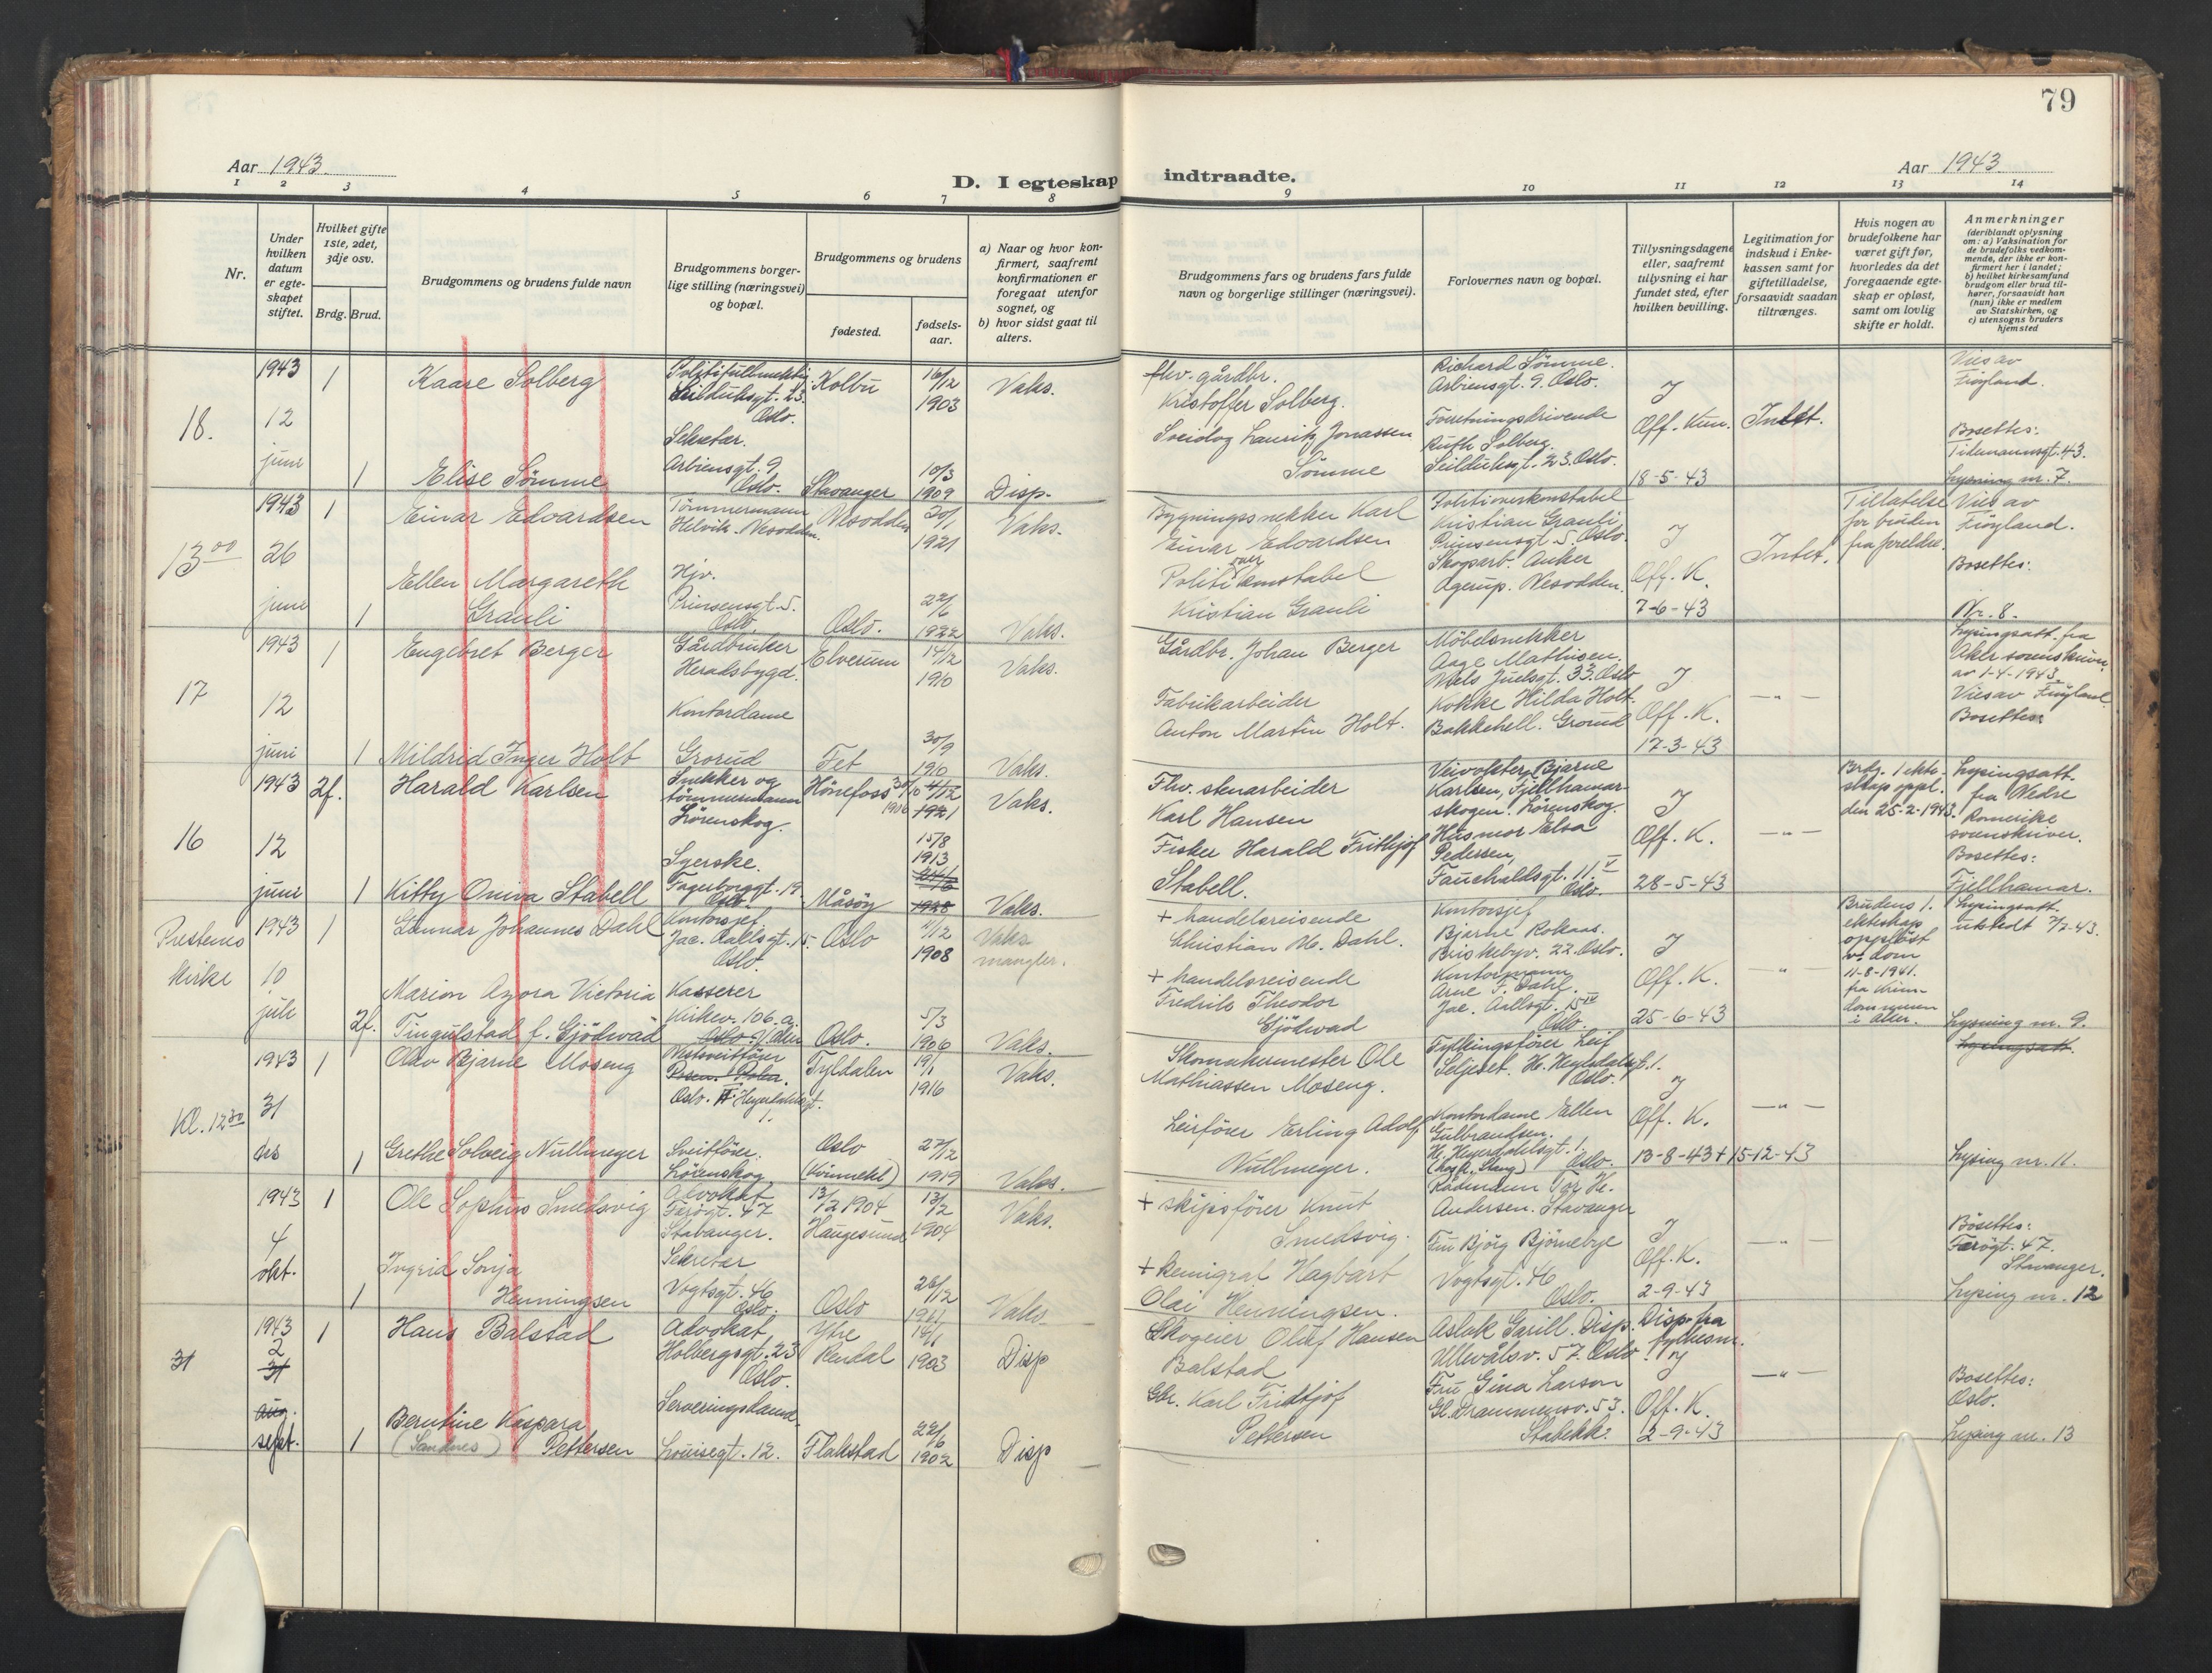 79
Aar 1943.
D. I egteskap indtraadte.
Aar 1943
1 2 3 4 5 6 7 8 9 10 11 12 13 14
Nr.
Under hvilken datum er egteskapet stiftet.
Hvilket gifte 1ste, 2det, 3dje osv.
Brdg. Brud.
Brudgommens og brudens fulde navn
Brudgommens borgerlige stilling (næringsvei) og bopæl.
Brudgommens og brudens
fødested.
fødselsaar.
a) Naar og hvor konfirmert, saafremt konfirmationen er foregaat utenfor sognet, og
b) hvor sidst gaat til alters.
Brudgommens fars og brudens fars fulde navn og borgerlige stillinger (næringsvei).
Forlovernes navn og bopæl.
Tillysningsdagene eller, saafremt tillysning ei har fundet sted, efter hvilken bevilling.
Legitimation for indskud i Enkekassen samt for giftetilladelse, forsaavidt saadan tiltrænges.
Hvis nogen av brudefolkene har været gift før, hvorledes da det foregaaende egteskap er opløst, samt om lovlig skifte er holdt.
Anmerkninger
(deriblandt oplysning om: a) Vaksination for de brudefolks vedkommende, der ikke er konfirmert her i landet; b) hvilket kirkesamfund brudgom eller brud tilhører, forsaavidt han (hun) ikke er medlem av Statskirken, og c) utensogns bruders hjemsted
18.
1943
12
juni
1
Kaare Solberg
Seilduksgt. 23.
Oslo.
Kolbu
16/12
1903
Vaks.
1
Elise Sømme
Sekretær.
Arbiensgt. 9,
Oslo.
Stavanger
10/3
1909
Disp.
fhv. gårdbr.
Kristoffer Solberg.
Lauritz Jonassen
Sømme
Richard Sømme.
Arbiensgt. 9. Oslo.
Forretningsdrivende
Ruth Solberg.
Seilduksgt. 23. Oslo.
Off. Kun.
18-5-43
Intet.
Vies av
Frøyland.
Bosettes:
Tidemannsgt. 43.
Lysning nr. 7.
13 00
1943
26
juni
1
Einar Edvardsen
Tømmermann
Helvik. Nesodden.
Nesodden
20/1
1921
Vaks.
1
Ellen Margareth
Grauli
Hjv.
Prinsensgt. 5.
Oslo.
Oslo.
22/6
1922
Vaks.
Bygningssnekker Karl
Einar Edvardsen
Politioverkonstabel
Kristian Grauli
Politioverkonstabel
Kristian Grauli,
Prinsensgt. 5. Oslo.
Skogsarb. Anker
Agerup. Nesodden.
Off. K.
7-6-43
Intet.
Tillatelse
for bruden
fra foreldre.
Vies av
Frøyland.
Bosettes:
Nr. 8.
17
1943
12
juni
1
Engebret Berger
Gårdbruker
Heradsbygd.
Elverum
14/12
1910
Vaks.
1
Mildrid Inger Holt
Kontordame
Grorud
Fet
30/9
1910
Vaks.
Gårdbr. Johan Berger
Fabrikarbeider
Anton Martin Holt.
Møbelsnekker
Aage Mathisen.
Niels Juelsgt. 33. Oslo
Kokke Hilda Holt.
Bakkehell. Grorud
Off. K.
17-3-43
— " —
Lysingsatt. fra
Aker sorenskriver
av 1-4-1943.
Vies av Frøyland.
Bosettes:
16
1943
12
juni
2f.
Harald Karlsen
Snekker og
tømmermann
Lørenskog.
Hønefoss
30/10
1906
4/12
1921
Vaks.
1
Kitty Omva Stabell
Syerske.
Fagerborggt. 19.
Oslo.
Måsøy
15/8
1913
1928
Vaks.
Fhv. stenarbeider
Karl Hansen
Fisker Harald Frithjof
Stabell.
Veivokter Bjarne
Karlsen, Fjellhamar-
skogen. Lørenskog.
Husmor Elsa
Pedersen,
Fauchaldsgt. 11. V
Oslo.
Off. K.
28-5-43
— " —
Brdg. 1 ekte-
skap oppl.
den 25-2-1943.
Lysingsatt.
fra Nedre
Romerike
sorenskriver.
Bosettes:
Fjellhamar.
Prestenes
kirke
1943
10
juli
1
Gunnar Johannes Dahl
Kontorsjef
Jac. Aallsgt. 15.
Oslo.
Oslo
1908
Vaks
mangler.
2f.
Marion Azora Victoria
Tingulstad f. Gjødwad
Kasserer
Kirkev. 106. a
Oslo.
5/3
1906
Vaks.
+ handelsreisende
Christian M. Dahl.
+ handelsreisende
Fredrik Theodor
Gjødwad
Kontorsjef
Bjarne Rokaas.
Briskebyv. 22. Oslo.
Kontormann
Arne F. Dahl.
Jac. Aallsgt. 15 IV
Oslo.
Off. K.
25-6-43
— " —
Brudens 1.
ekteskap
oppløst
v. dom
11-8-1941.
i Aker.
Lysingsatt.
utstedt 7/2-43.
Lysning nr. 9.
Kl. 12 30
1943
31
des
1
Olav Bjarne Moseng
Oslo. H. Heyerdahlsgt.
1.
Tyldalen
19/1
1916
Vaks.
1
Grethe Solveig Nullmeyer
Sveitfører.
Lørenskog
Oslo
27/12
1919
Vaks.
Skomakermester Ole
Mathiassen Moseng.
Leirfører Erling Adolf
Nullmeyer.
Fylkingsfører Leif
Seljeset. H. Heyerdahlsgt. 1.
Oslo.
Kontordame Ellen
Gulbrandsen.
H. Heyerdahlsgt. 1.
Oslo.
Off. K.
13-8-43 + 15-12-43
— " —
Lysingsatt.
Lysing nr. 11.
1943
4
okt.
1
Ole Sophus Smedsvig
Advokat
Færøgt. 47
Stavanger.
13/2 1904
Haugesund
13/2
1904
Vaks.
1
Ingrid Sonja
Henningsen
Sekretær
Vogtsgt. 46
Oslo.
Oslo
26/12
1911
Vaks
+ skipsfører Knut
Smedsvig.
+ kemigraf Hagbart
Olai Henningsen.
Rådmann Tor He.
Andersen. Stavanger
Fru Bjørg Bjørnebye
Vogtsgt. 46
Oslo.
Off. K.
2-9-43
— " —
Bosettes:
Færøgt. 47.
Stavanger.
Lysing nr. 12
31
1943
2
31
aug.
sept.
1
Hans Balstad
Advokat
Holbergsgt. 23
Oslo.
Ytre
Rendal
1903
Disp
1
Berntine Kaspara
(Sandnes) Pettersen
Serveringsdame.
Louisegt. 12.
Flakstad
22/6
1902
Disp
Skogeier Oluf Hansen
Balstad
Gbr. Karl Fridtjof
Pettersen
Aslak Garill. Disp.
Ullevålsv. 57. Oslo
Fru Gina Larson
Gl. Drammensv. 53.
Stabekk.
Disp. fra
fylkesm.
Off. K.
2-9-43
— " —
Bosettes:
Oslo.
Lysing nr. 13